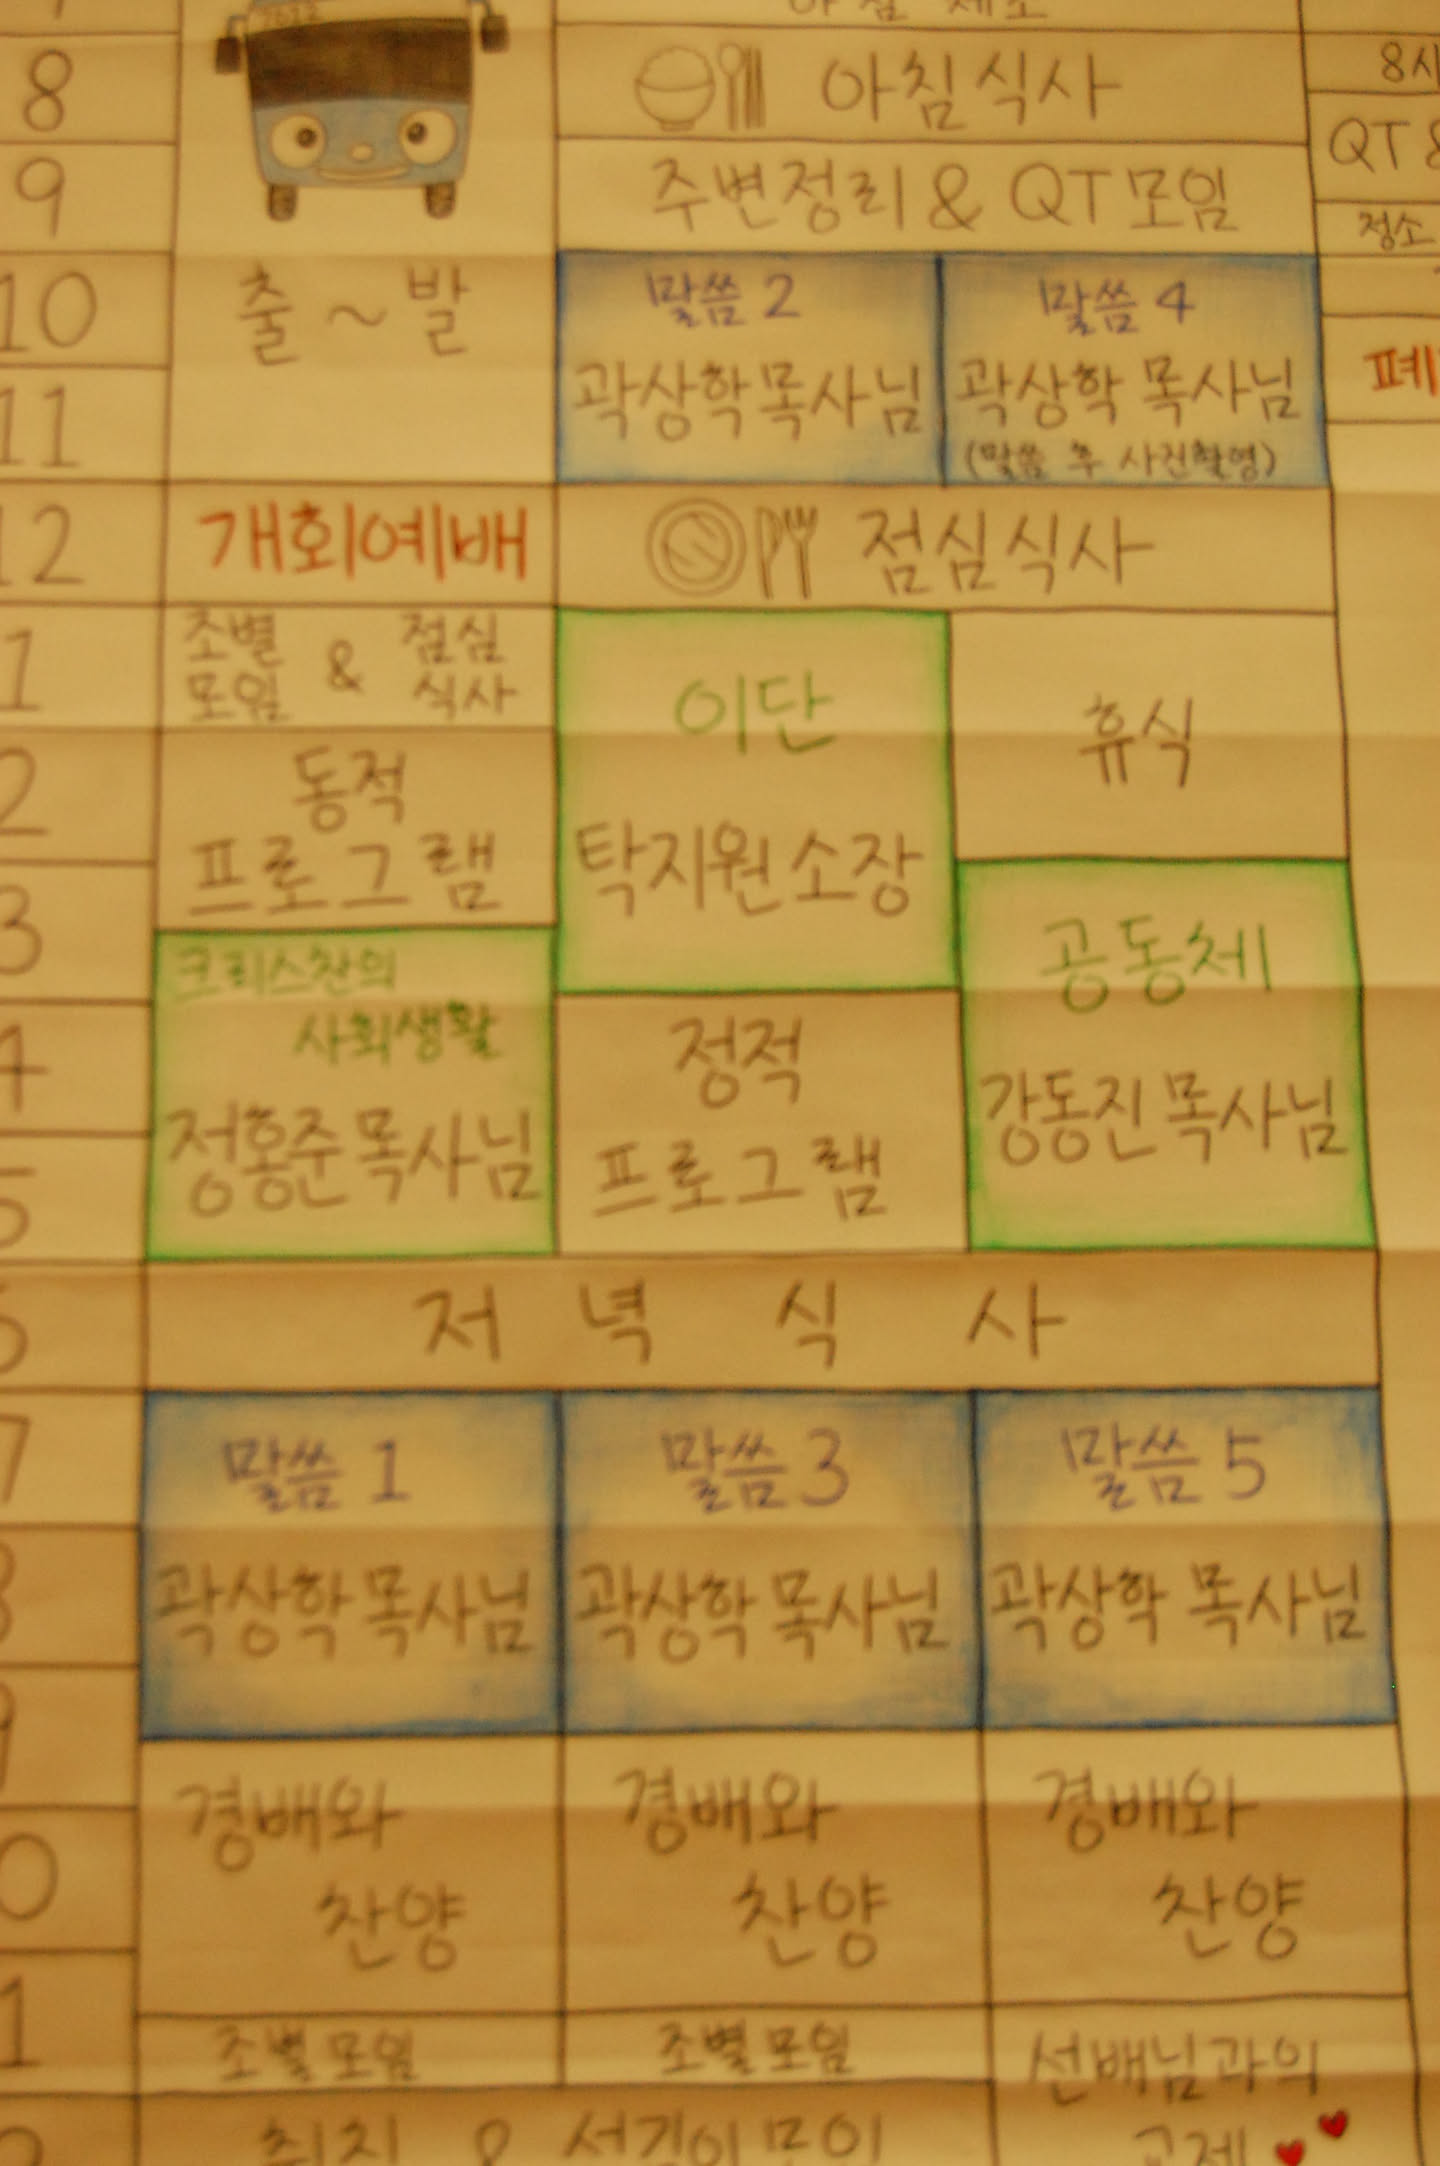 8
아침식사
8시
9
주변정리 & QT모임
QT &
청소
10
출 ~ 발
말씀 2
말씀 4
곽상학목사님
곽상학 목사님
11
(말씀 후 사진촬영)
12
개회예배
점심식사
1
조별 & 점심
모임 식사
이단
휴식
2
동적
프로그램
탁지원 소장
3
크리스찬의
사회생활
공동체
4
정적
정홍준목사님
프로그램
강동진 목사님
5
저 녁 식 사
7
말씀 1
말씀 3
말씀 5
곽상학 목사님
곽상학 목사님
곽상학 목사님
경배와
찬양
경배와
찬양
경배와
찬양
조별모임
조별모임
선배님과의
취침 & 섬김이모임
교제